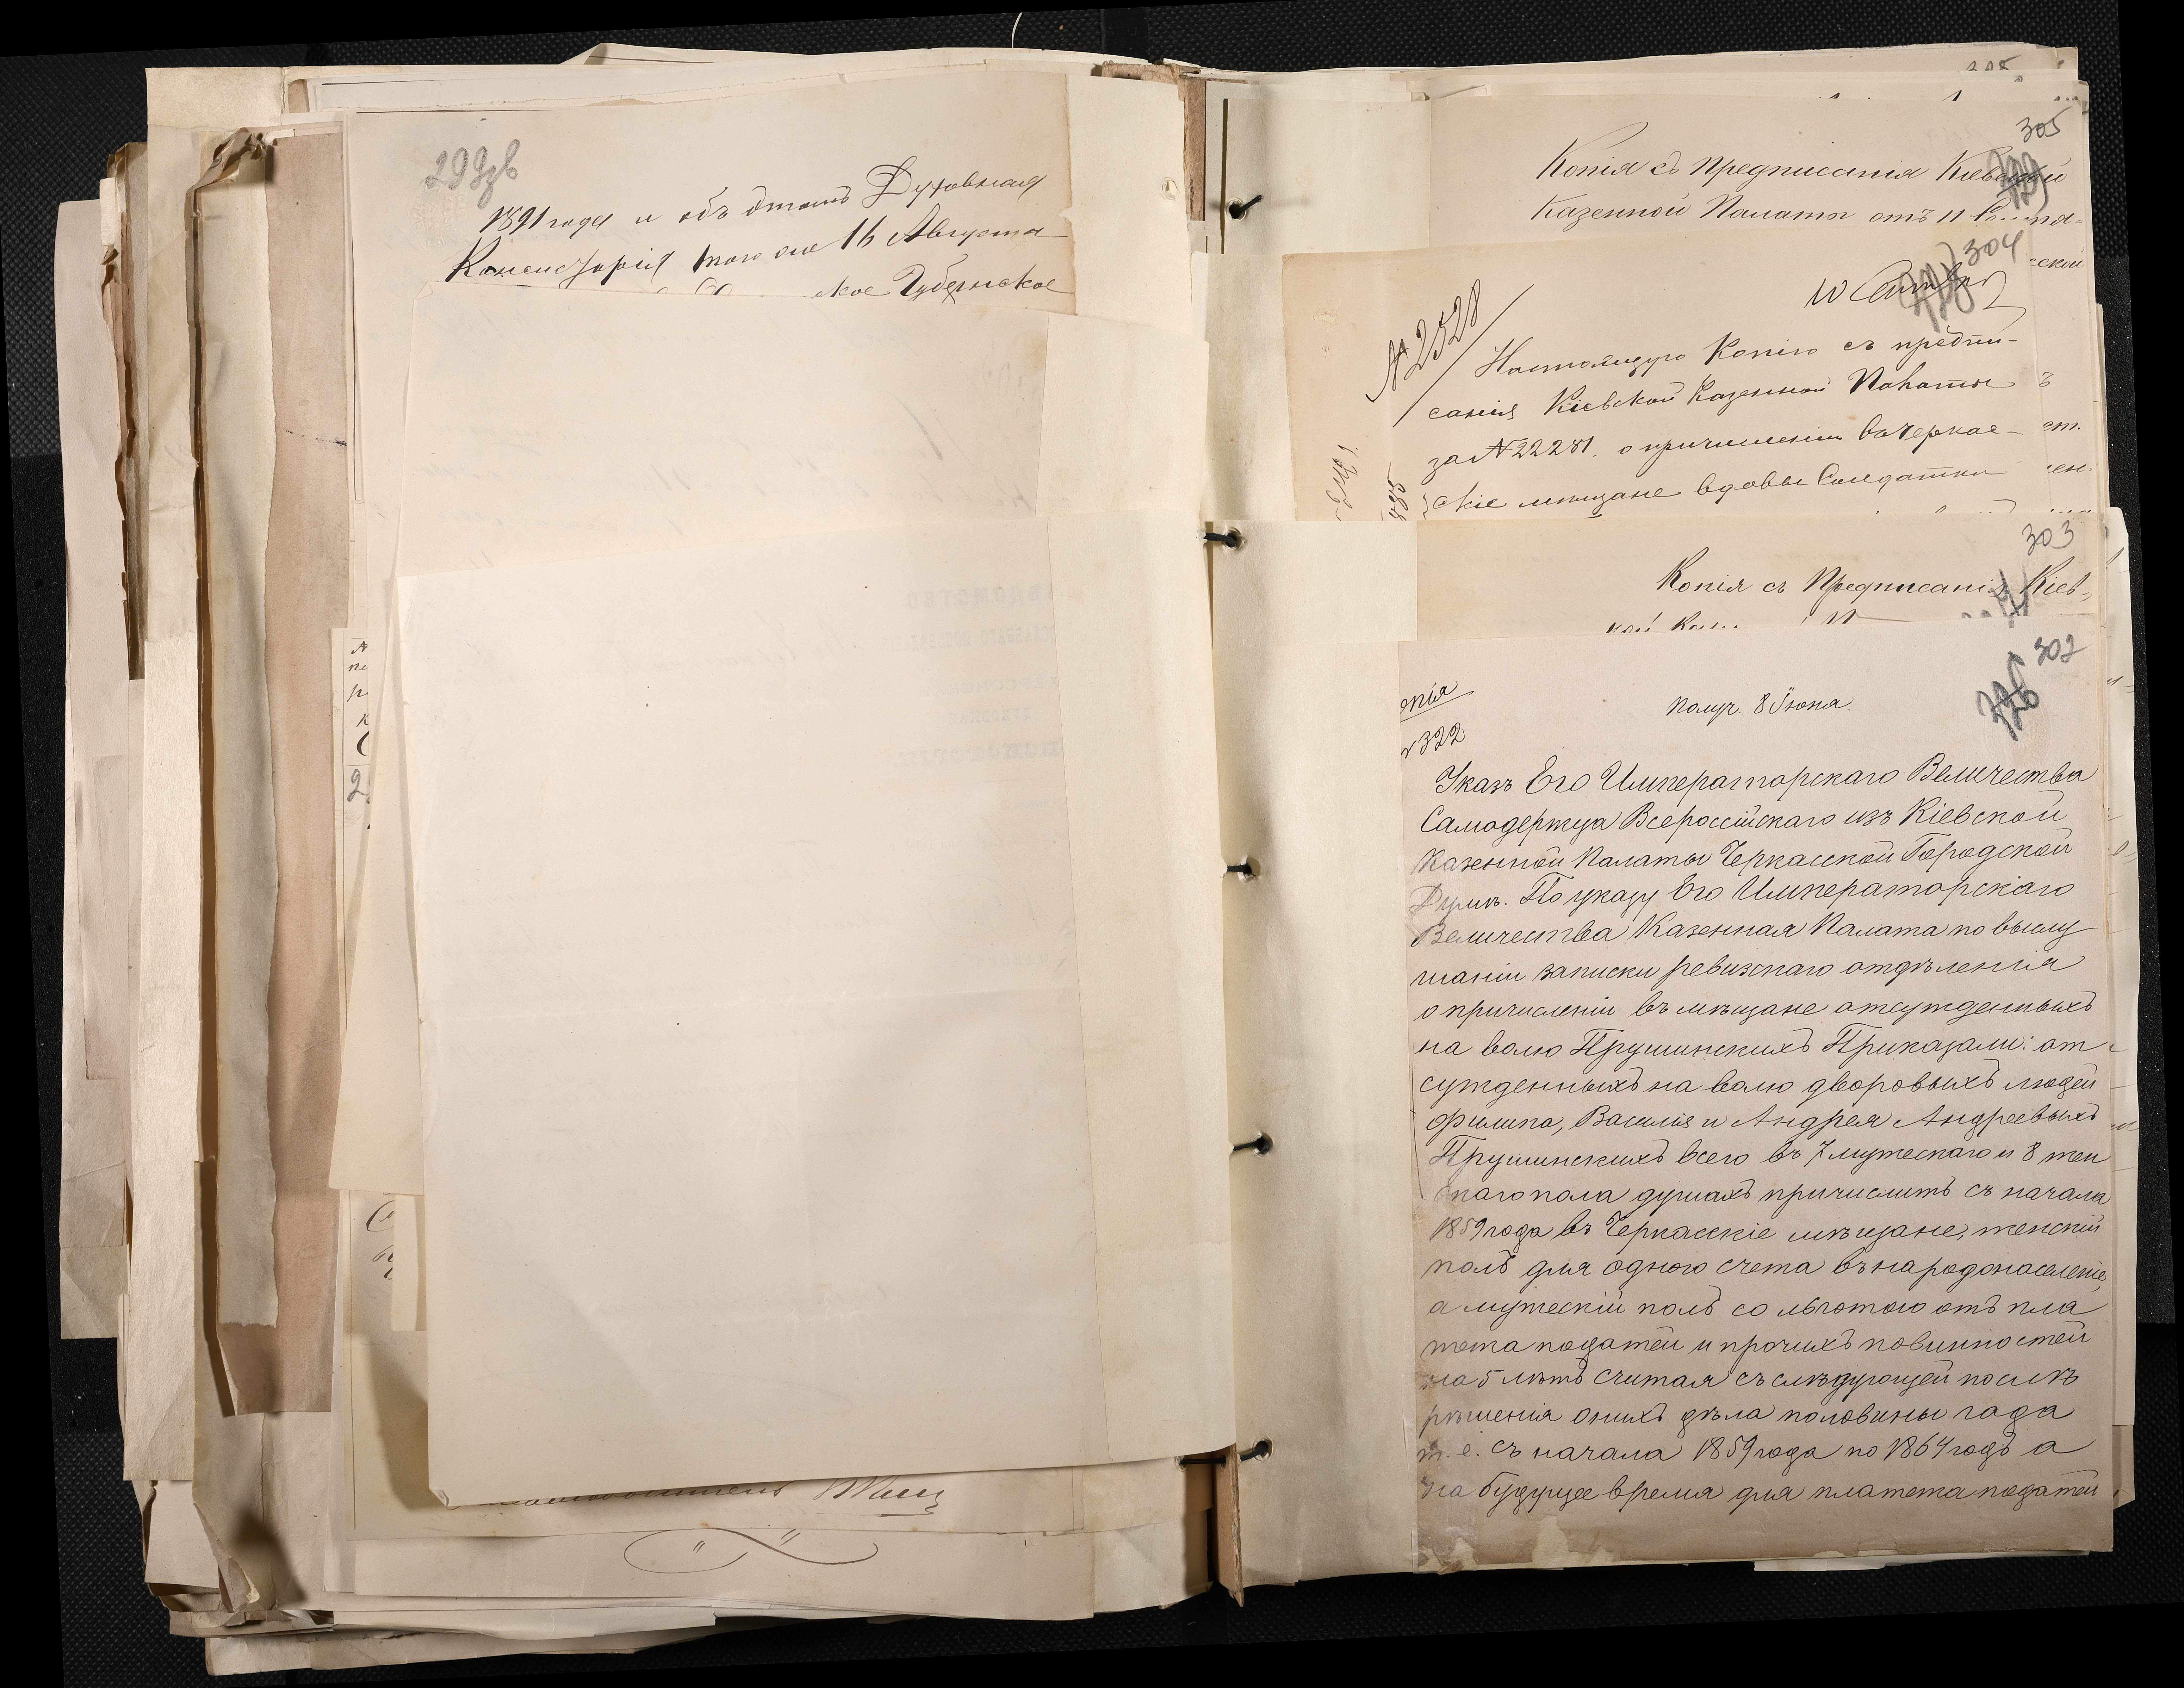 299зв
1891 года и объ этомъ Духовная
Консисторія того же 16 Августа
ское Губернское
305
Копія съ Предписанія Кіевской
Казенной Палаты отъ 11
304
№ 2528
Настоящую Копію съ предпи-
санія Кіевской Казенной Палаты
за № 22281. о причисленіи въ Черкас-
скіе мѣщане вдовы Солдатки
303
Копія съ Предписанія Кіев-
302
726
пія
Получ. 8 Іюня.
№322
Указъ Его Императорскаго Величества
Самодержца Всероссійскаго изъ Кіевской
Казенной Палаты Черкасской Городской
Думѣ. По указу Его Императорскаго
Величества Казенная Палата по выслу
шаніи записки ревизскаго отдѣленія
о причисленіи въ мѣщане отсужденныхъ
на волю Прушинскихъ Приказали: от
сужденныхъ на волю дворовыхъ людей
Филипа, Василія и Андрея Андреевыхъ
Прушинскихъ всего въ 7 мужескаго и 8 жен
скаго пола душахъ причислить съ начала
1859 года въ Черкасскіе мѣщане, женскій
полъ для одного счета въ народонаселеніе,
а мужескій полъ со льготою отъ пла
тежа податей и прочихъ повинностей
на 5 лѣтъ считая съ слѣдующей послѣ
рѣшенія онихъ дѣла половины года
т.е. съ начала 1859 года по 1864 годъ а
на будущее время для платежа податей